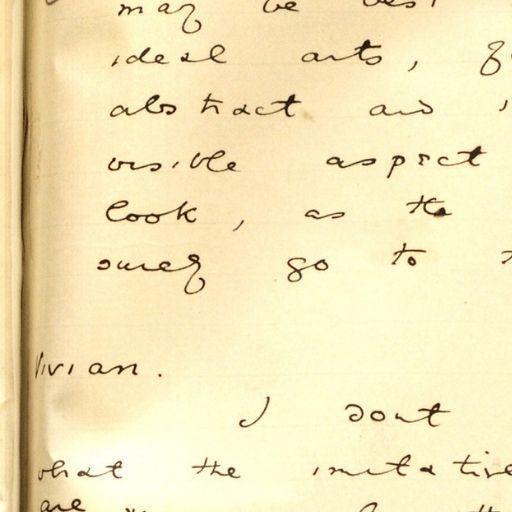 may be best
ideal arts,
abstract and
visible aspect
look, as the
surely go to
Vivian.
I dont
what the imitative
are